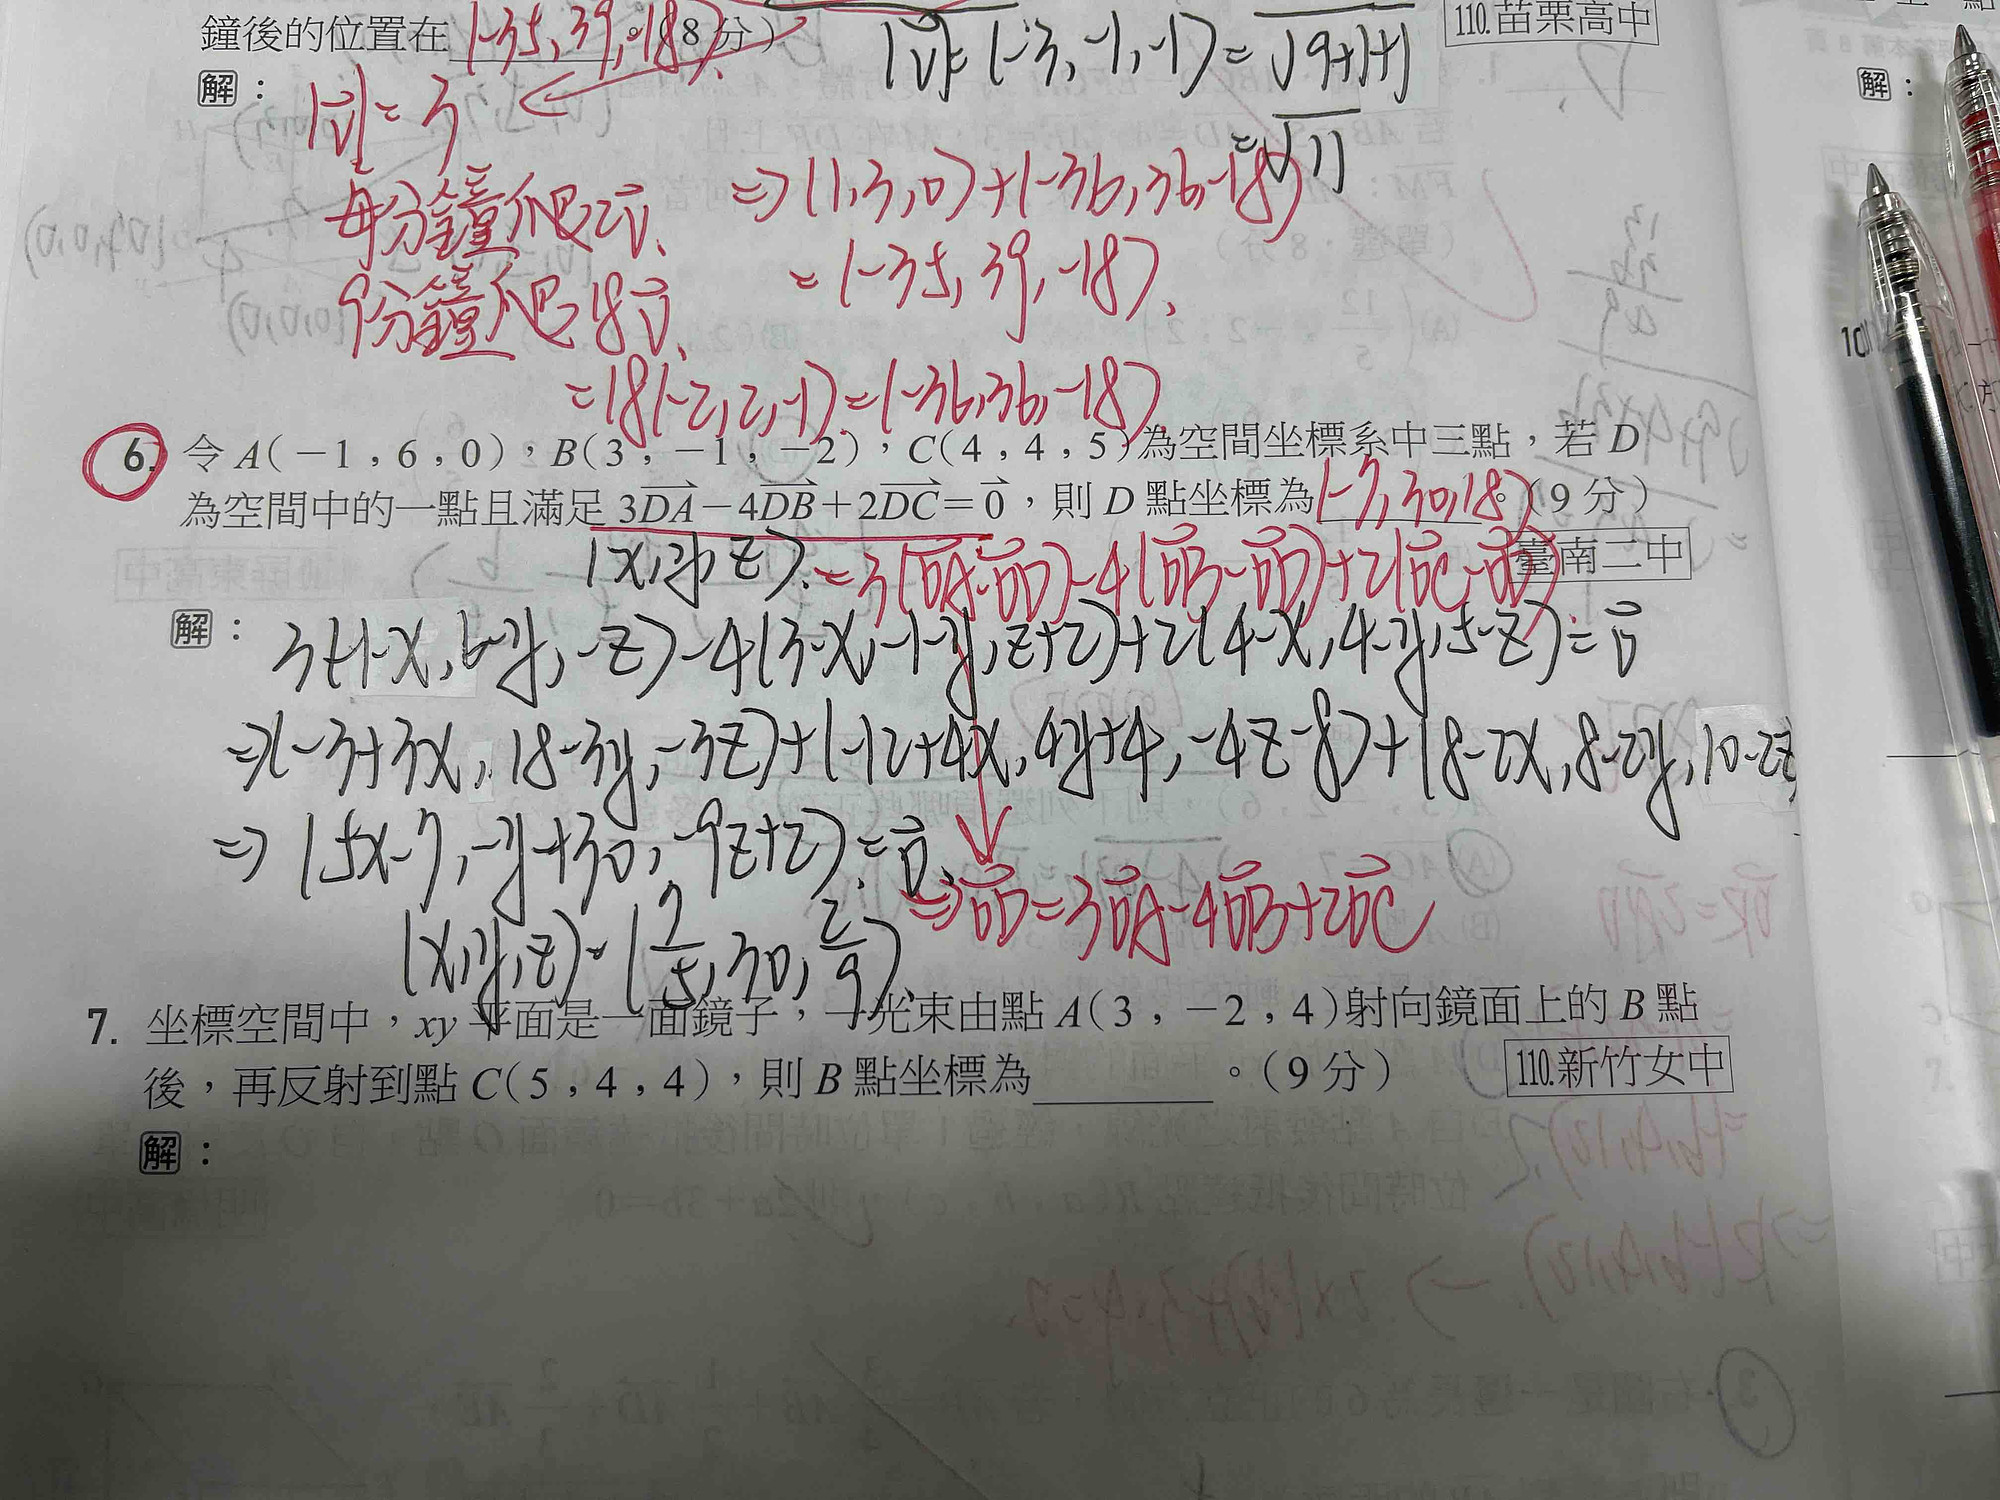 鐘後的位置在(-35,39,-18)。(8分)
|v|=(-3,-1,-1)=√9+1+1
110.苗栗高中
=√11
解：
|v|=3
每分鐘爬2v、
9分鐘爬18v、
=18(-2,2,-1)=(-36,36,-18)、
⇒(1,3,0)+(-36,36,-18)
=(-35,39,-18)、
6. 令A(－1，6，0)，B(3，－1，－2)，C(4，4，5)為空間坐標系中三點，若D
為空間中的一點且滿足3DA－4DB＋2DC＝0，則D點坐標為(-7,30,18)。(9分)
臺南二中
(x,y,z)、
=3(OA-OD)-4(OB-OD)+2(OC-OD)
解：
3(-1-x,6-y,-z)-4(3-x,-1-y,z+2)+2(4-x,4-y,5-z)=0
⇒(-3+3x,18-3y,-3z)+(-12+4x,4y+4,-4z-8)+(8-2x,8-2y,10-2z
⇒(5x-7,-y+30,-9z+2)=0、
⇒OD=3OA-4OB+2OC
(x,y,z)=(7/5,30,2/9)、
7. 坐標空間中，xy平面是一面鏡子，一光束由點A(3，－2，4)射向鏡面上的B點
後，再反射到點C(5，4，4)，則B點坐標為________。(9分)
110.新竹女中
解：
解：
10